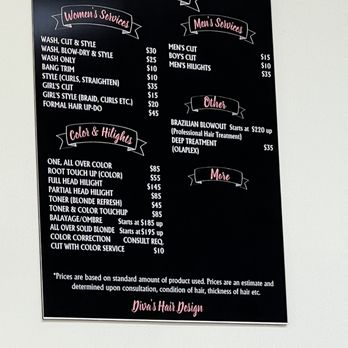 Women's Services
WASH, CUT & STYLE
WASH, BLOW-DRY & STYLE $30
WASH ONLY $25
BANG TRIM $10
STYLE (CURLS, STRAIGHTEN) $10
GIRL'S CUT $35
GIRL'S STYLE (BRAID, CURLS ETC.) $15
FORMAL HAIR UP-DO $20
$45
Color & Hilights
ONE, ALL OVER COLOR
ROOT TOUCH UP (COLOR) $85
FULL HEAD HILIGHT $55
PARTIAL HEAD HILIGHT $145
TONER (BLONDE REFRESH) $85
TONER & COLOR TOUCHUP $45
BALAYAGE/OMBRE $85
ALL OVER SOLID BLONDE Starts at $185 up
COLOR CORRECTION Starts at $195 up
CUT WITH COLOR SERVICE CONSULT REQ.
$10
Men's Services
MEN'S CUT
BOY'S CUT $15
MEN'S HILIGHTS $10
$35
Other
BRAZILIAN BLOWOUT Starts at $220 up
(Professional Hair Treatment)
DEEP TREATMENT $35
(OLAPLEX)
More
*Prices are based on standard amount of product used. Prices are an estimate and
determined upon consultation, condition of hair, thickness of hair etc.
Diva's Hair Design